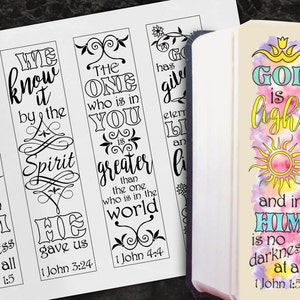 ness
all
1:5
WE
know
it
by the
Spirit
HE
gave us
1 John 3:24
The
ONE
who is in
YOU
is
greater
than the
one
who is in the
world
1 John 4:4
has
GOD
is
light
and in
HIM
is no
darkness
at a
1 John 1:5